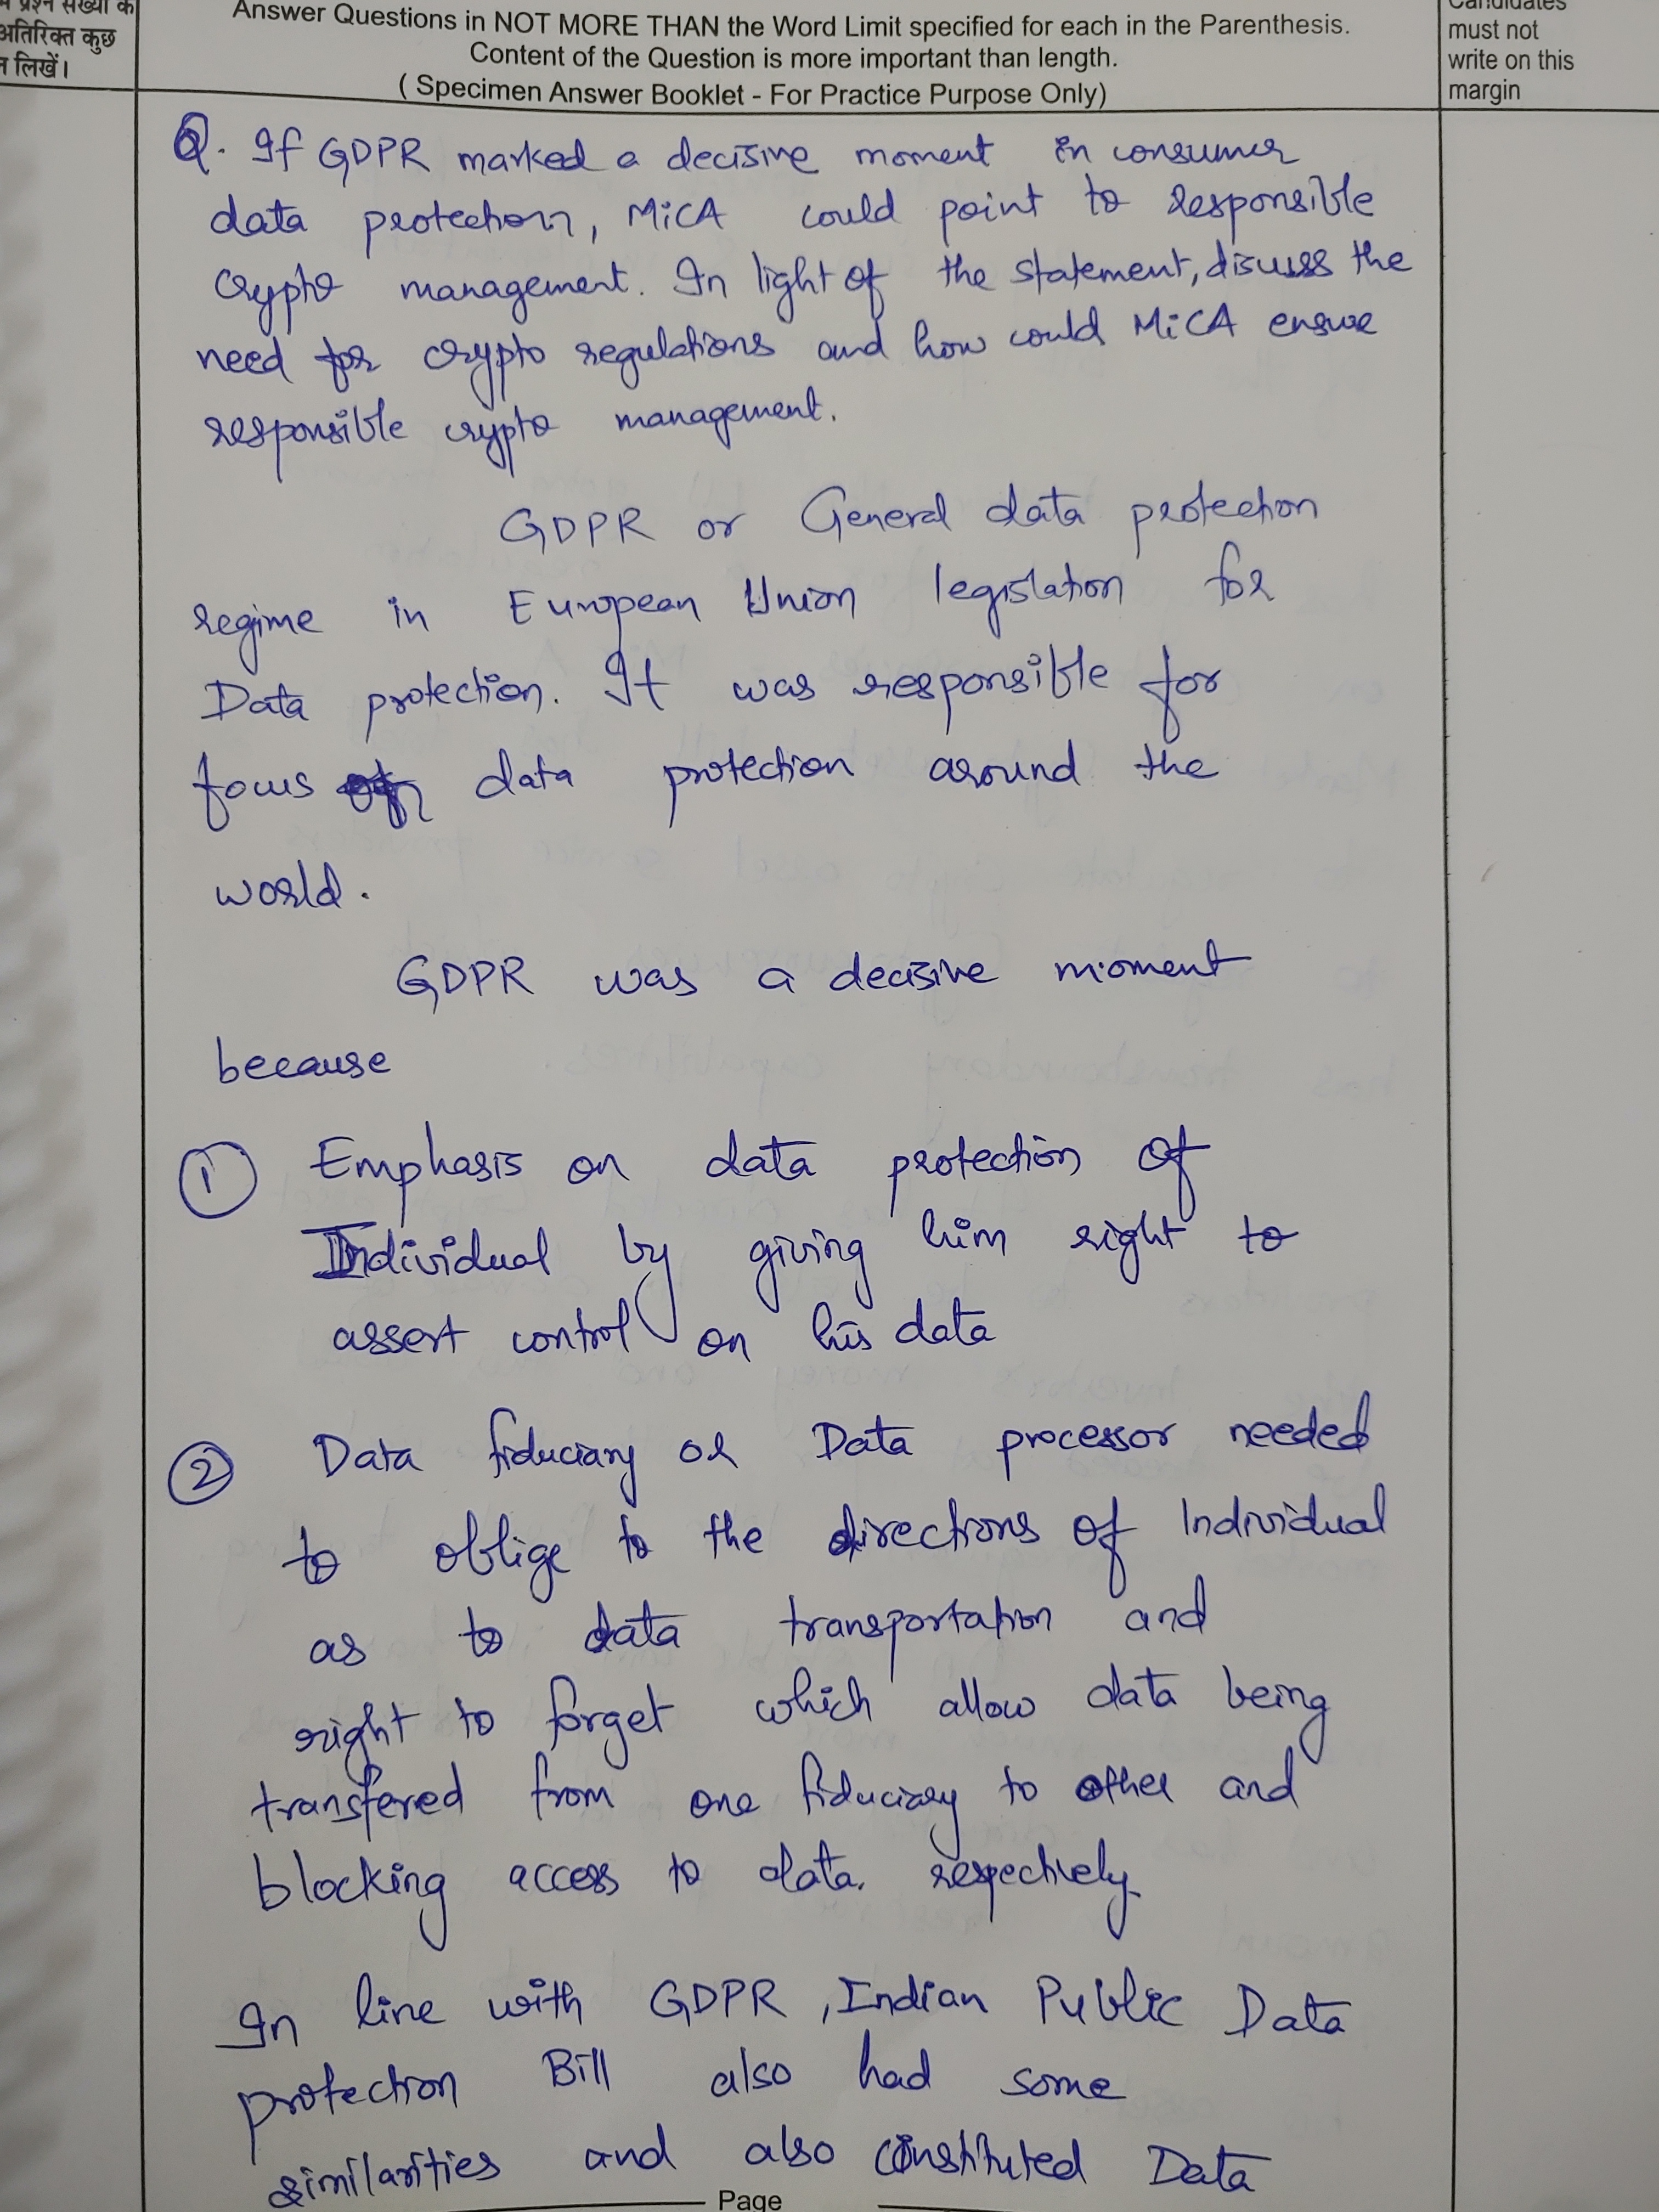 प्रश्न संख्या के
अतिरिक्त कुछ
न लिखें।
Answer Questions in NOT MORE THAN the Word Limit specified for each in the Parenthesis.
Content of the Question is more important than length.
( Specimen Answer Booklet - For Practice Purpose Only)
Candidates
must not
write on this
margin
Q. If GDPR marked a decisive moment in consumer
data protection, MiCA could point to responsible
crypto management. In light of the statement, discuss the
need for crypto regulations and how could MiCA ensure
responsible crypto management.
GDPR or General data protection
regime in European Union legislation for
Data protection. It was responsible for
focus on data protection around the
world.
GDPR was a decisive moment
because
1 Emphasis on data protection of
Individual by giving him right to
assert control on his data
2 Data fiduciary or Data processor needed
to oblige to the directions of Individual
as to data transportation and
right to forget which allow data being
transfered from one fiduciary to other and
blocking access to data. respectively
In line with GDPR, Indian Public Data
protection Bill also had some
similarities and also constituted Data
Page